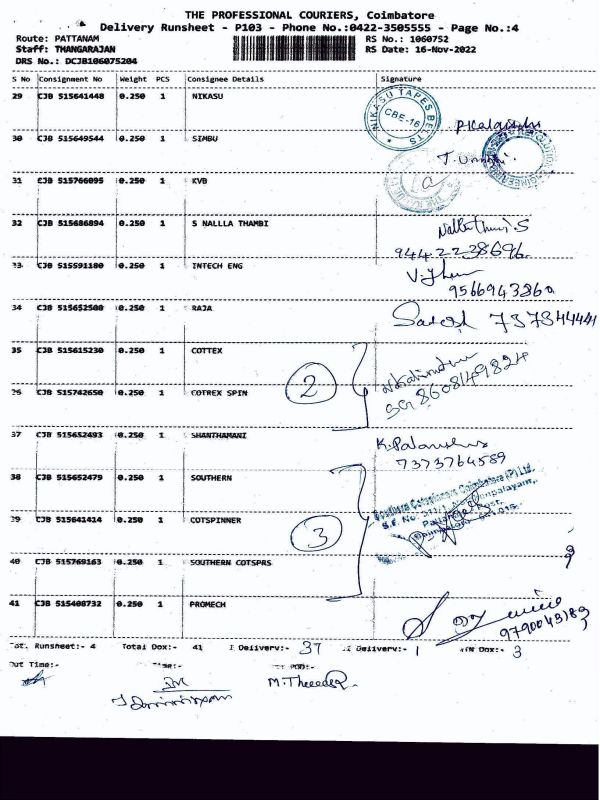 THE PROFESSIONAL COURIERS, Coimbatore
Delivery Runsheet - P103 - Phone No.:0422-3505555 - Page No.:4
Route: PATTANAM RS No.: 1060752
Staff: THANGARAJAN RS Date: 16-Nov-2022
DRS No.: DCJB106075204
S No Consignment No Weight PCS Consignee Details Signature
29 CJB 515641448 0.250 1 NIKASU
NIKASU TAPES BELTS CBE-16
30 CJB 515649544 0.250 1 SIMBU
31 CJB 515766095 0.250 1 KVB
32 CJB 515686894 0.250 1 S NALLLA THAMBI
9442238696
33 CJB 515591180 0.250 1 INTECH ENG
9566943860
34 CJB 515652508 0.250 1 RAJA
737344441
35 CJB 515615230 0.250 1 COTTEX
2
8608149824
36 CJB 515742650 0.250 1 COTREX SPIN
37 CJB 515652493 0.250 1 SHANTHAMANI
7373764589
38 CJB 515652479 0.250 1 SOUTHERN
39 CJB 515641414 0.250 1 COTSPINNER
3
40 CJB 515769163 0.250 1 SOUTHERN COTSPRS
41 CJB 515408732 0.250 1 PROMECH
9790043183
Tot. Runsheet:- 4 Total Dox:- 41 Delivery:- 37 Delivery:- 1 Dox:- 3
Out Time:-